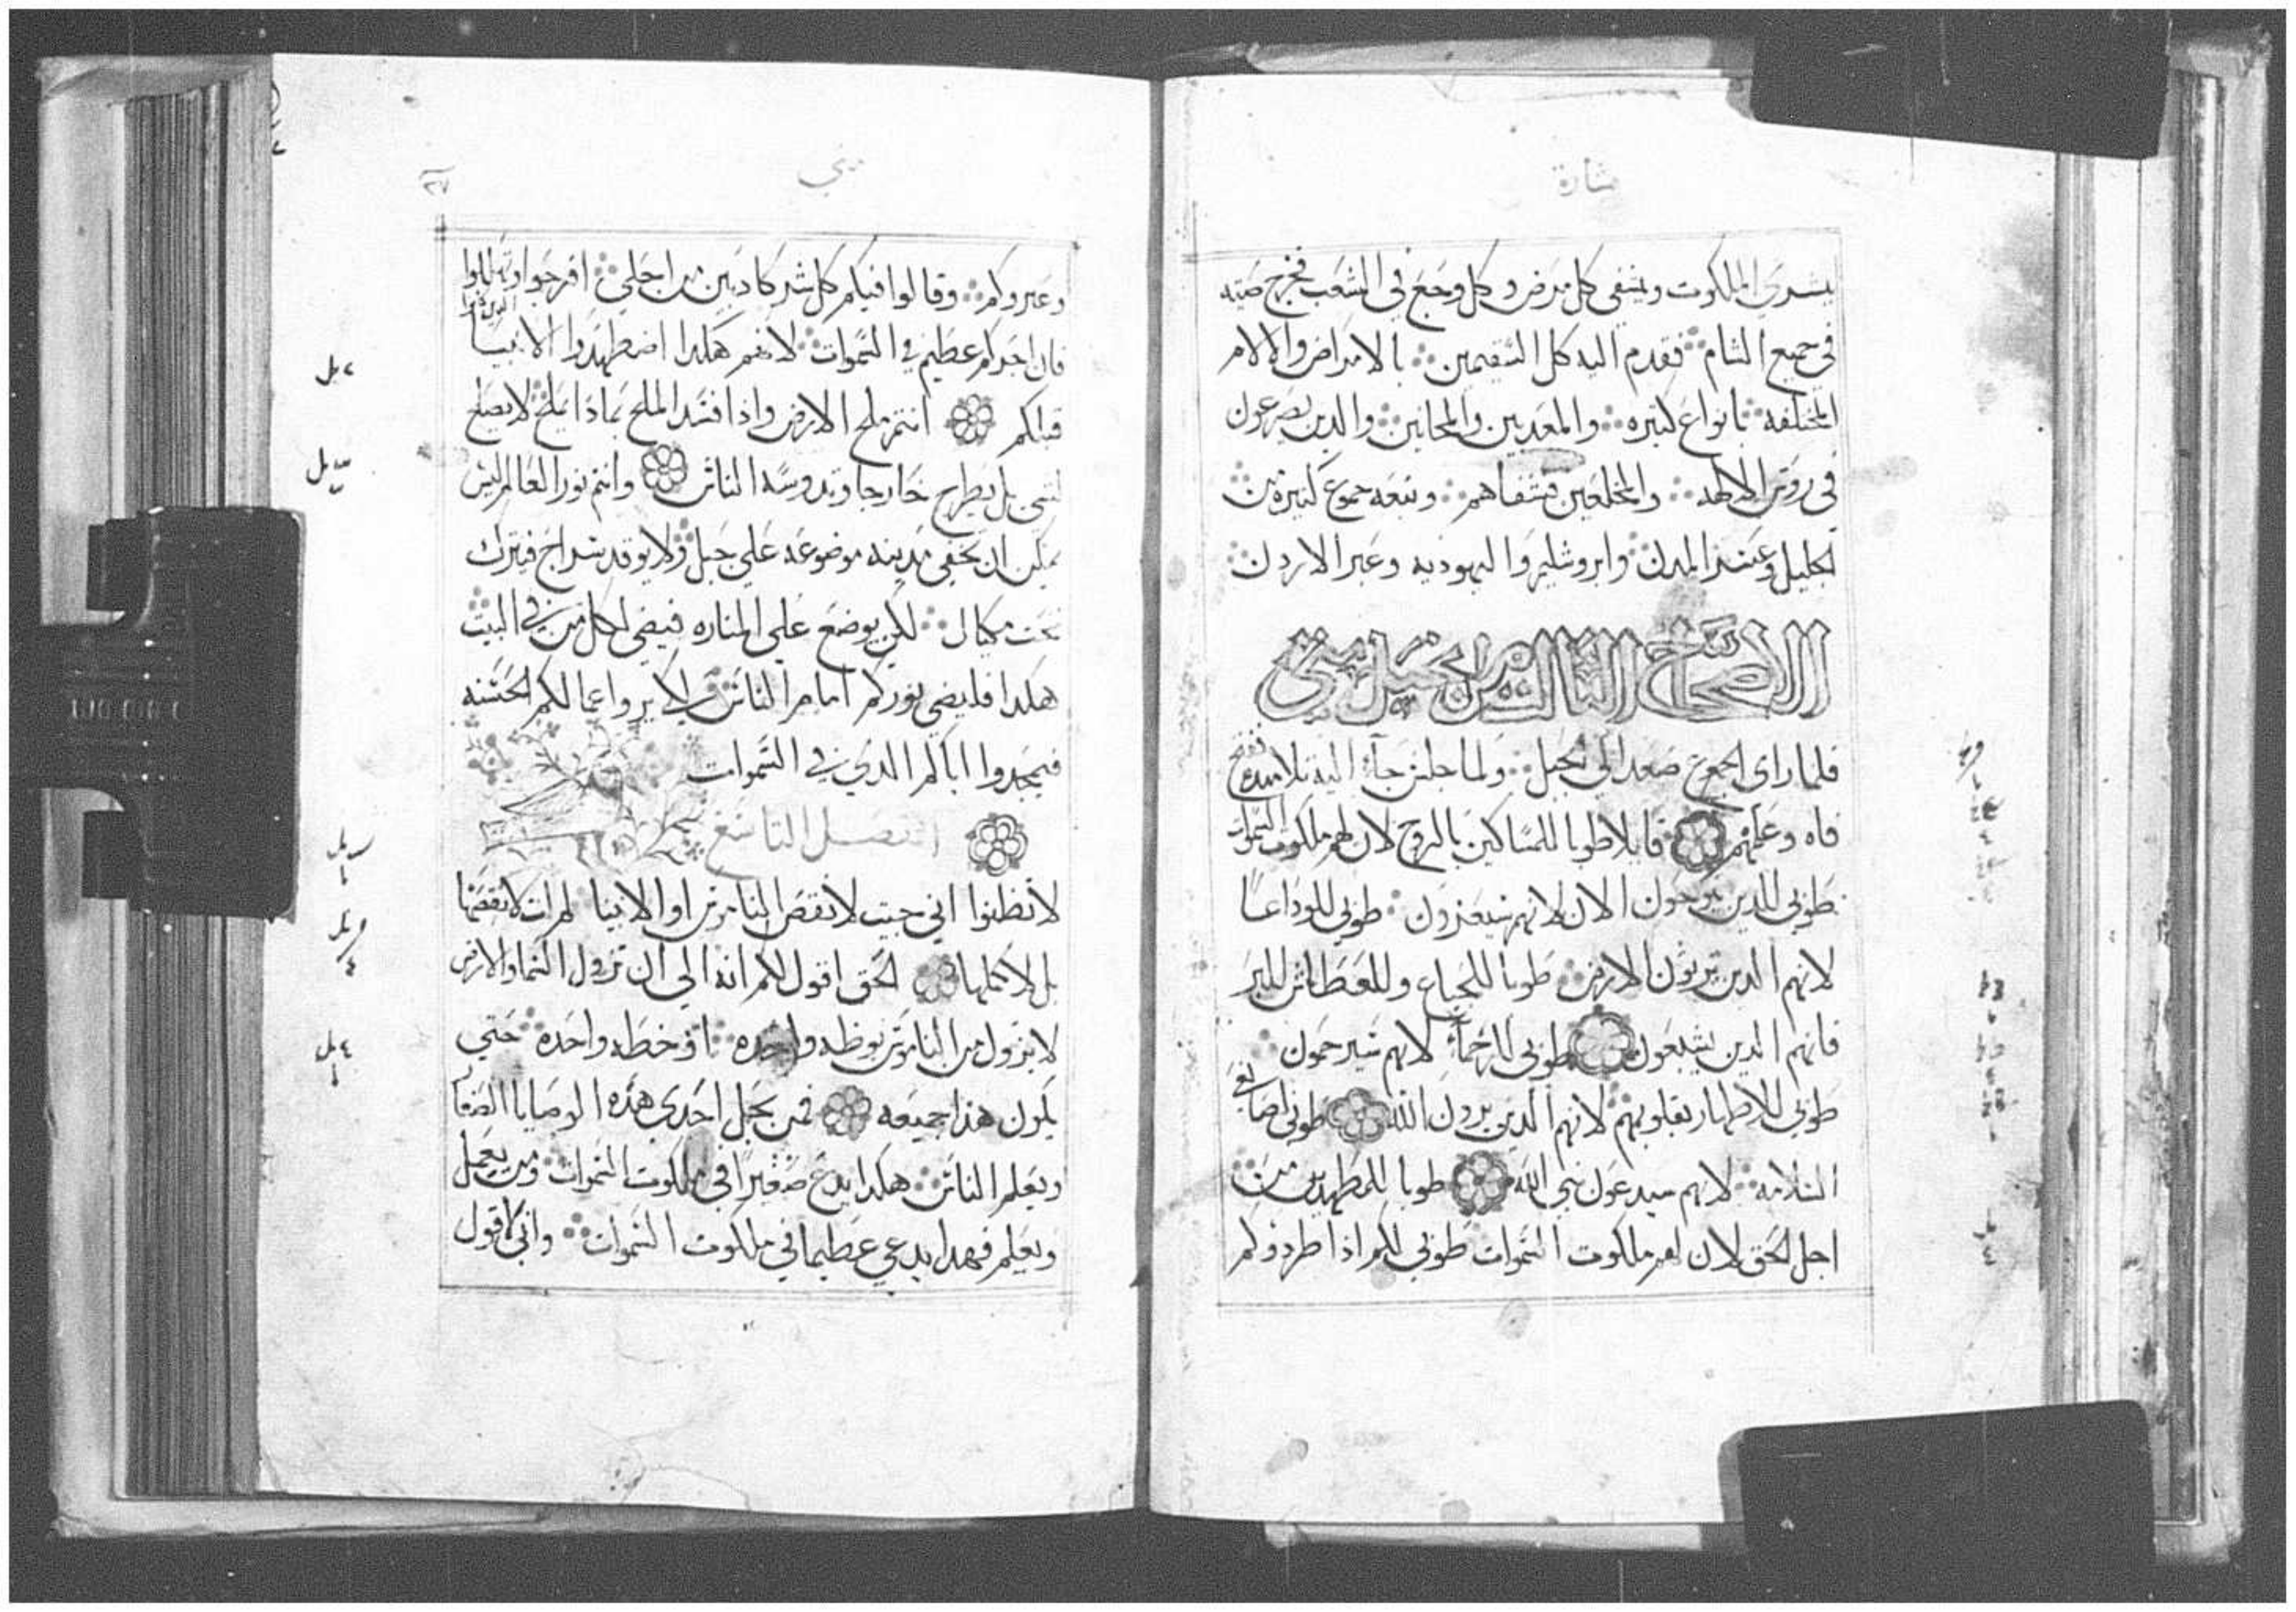 بشارة
بشري الملكوت ويشفي كل مرض وكل وجع في الشعب فخرج صيته
في جميع الشام فقدم اليه كل السقيمين بالامراض والالام
المختلفه بانواع كثيره والمعدبين والمجانين والدين يصرعون
في روس الاهله والمخلعين فشفاهم وتبعه جموع كثيره من
الجليل وعشر المدن وايروشليم واليهوديه وعبر الاردن
الاصحاح الثالث من انجيل متي
فلما راي الجموع صعد الي الجبل ولما جلس جآء اليه تلاميده ففتح
فاه وعلمهم قايلا طوبا للمساكين بالروح لان لهم ملكوت السموات
طوبي للدين ينوحون الان لانهم سيعزون طوبي للوداعا
لانهم الدين يرثون الارض طوبا للجياع وللعطاش للبر
فانهم الدين يشبعون طوبي للرحمآء لانهم سيرحمون
طوبي للاطهار بقلوبهم لانهم الدين يرون الله طوبي اصانعي
السلامه لانهم سيدعون بني الله طوبا للمطهدين من
اجل الحق لان لهم ملكوت السموات طوبي لكم اذا طردوكم
متي
وعيروكم وقالوا فيكم كل شر كادبين من اجلي افرحوا وتهللوا
فان اجركم عظيم في السموات لانهم هكدا اضطهدوا الانبيا
الدين
قبلكم انتم ملح الارض واذا فسد الملح بمادا يملح لا يصلح
لشي بل يطرح خارجا وتدوسه الناس وانتم نور العالم ليس
يمكن ان تخفي مدينه موضوعه علي جبل ولا يوقد سراج فيترك
تحت مكيال لكن يوضع علي المناره فيضي لكل من في البيت
هكدا فليضي نوركم امام الناس لكي يروا اعمالكم الحسنه
فيمجدوا اباكم الدي في السموات
الفصل التاسع
لا تظنوا اني جيت لانقص الناموس او الانبيا لم ات لانقصها
بل لاكملها الحق اقول لكم انه الي ان تزول السما والارض
لا يزول من الناموس نوطه واحده او خطه واحده حتي
يكون هذا جميعه فمن يحل احدي هذه الوصايا الصغار
ويعلم الناس هكدا يدع صغيرا في ملكوت السموات ومن يعمل
ويعلم فهدا يدعي عظيما في ملكوت السموات واني اقول